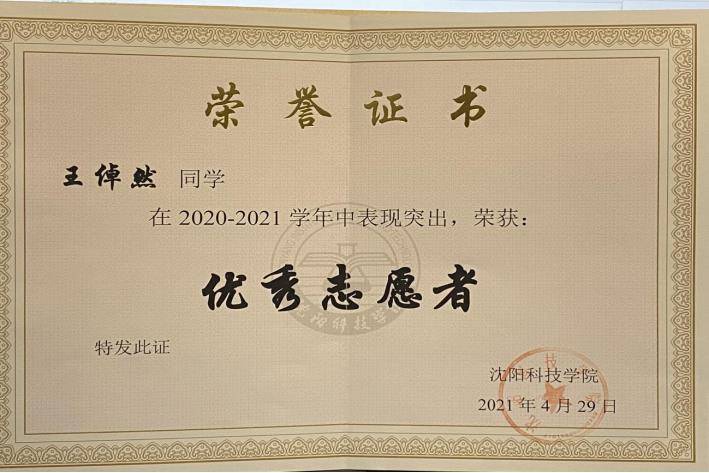 荣誉证书
王倬然 同学
在 2020-2021 学年中表现突出，荣获：
优秀志愿者
特发此证
沈阳科技学院
2021 年 4 月 29 日